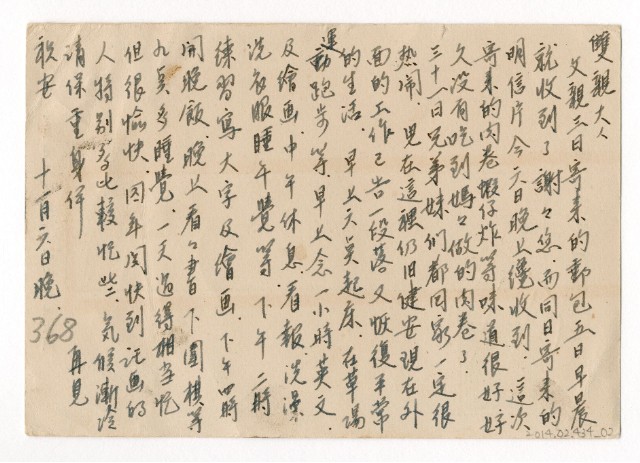 雙親大人
父親三日寄來的郵包五日早晨
就收到了謝々您,而同日寄來的
明信片今六日晚上纔收到.這次
寄來的肉卷蝦仔炸等味道很好,好
久沒有吃到媽々做的肉卷了.
三十一日兄弟妹们都回家一定很
热闹 兒在這裡仍旧健安現在外
面的工作已告一段落又恢復平常
的生活.早上六点起床.在草場
運動跑步等.早上念一小時英文
及繪画.中午休息.看報洗澡
洗衣服睡午覺等.下午二時
練習寫大字及繪画.下午四時
開晚飯.晚上看々書下圍棋等
九点多睡覺.一天過得相当忙
但很愉快.因年関快到 託画的
人特别多比較忙些.气候漸冷
請保重身体 再見
敬安 十一月六日晚.
368
2014.02.434_02